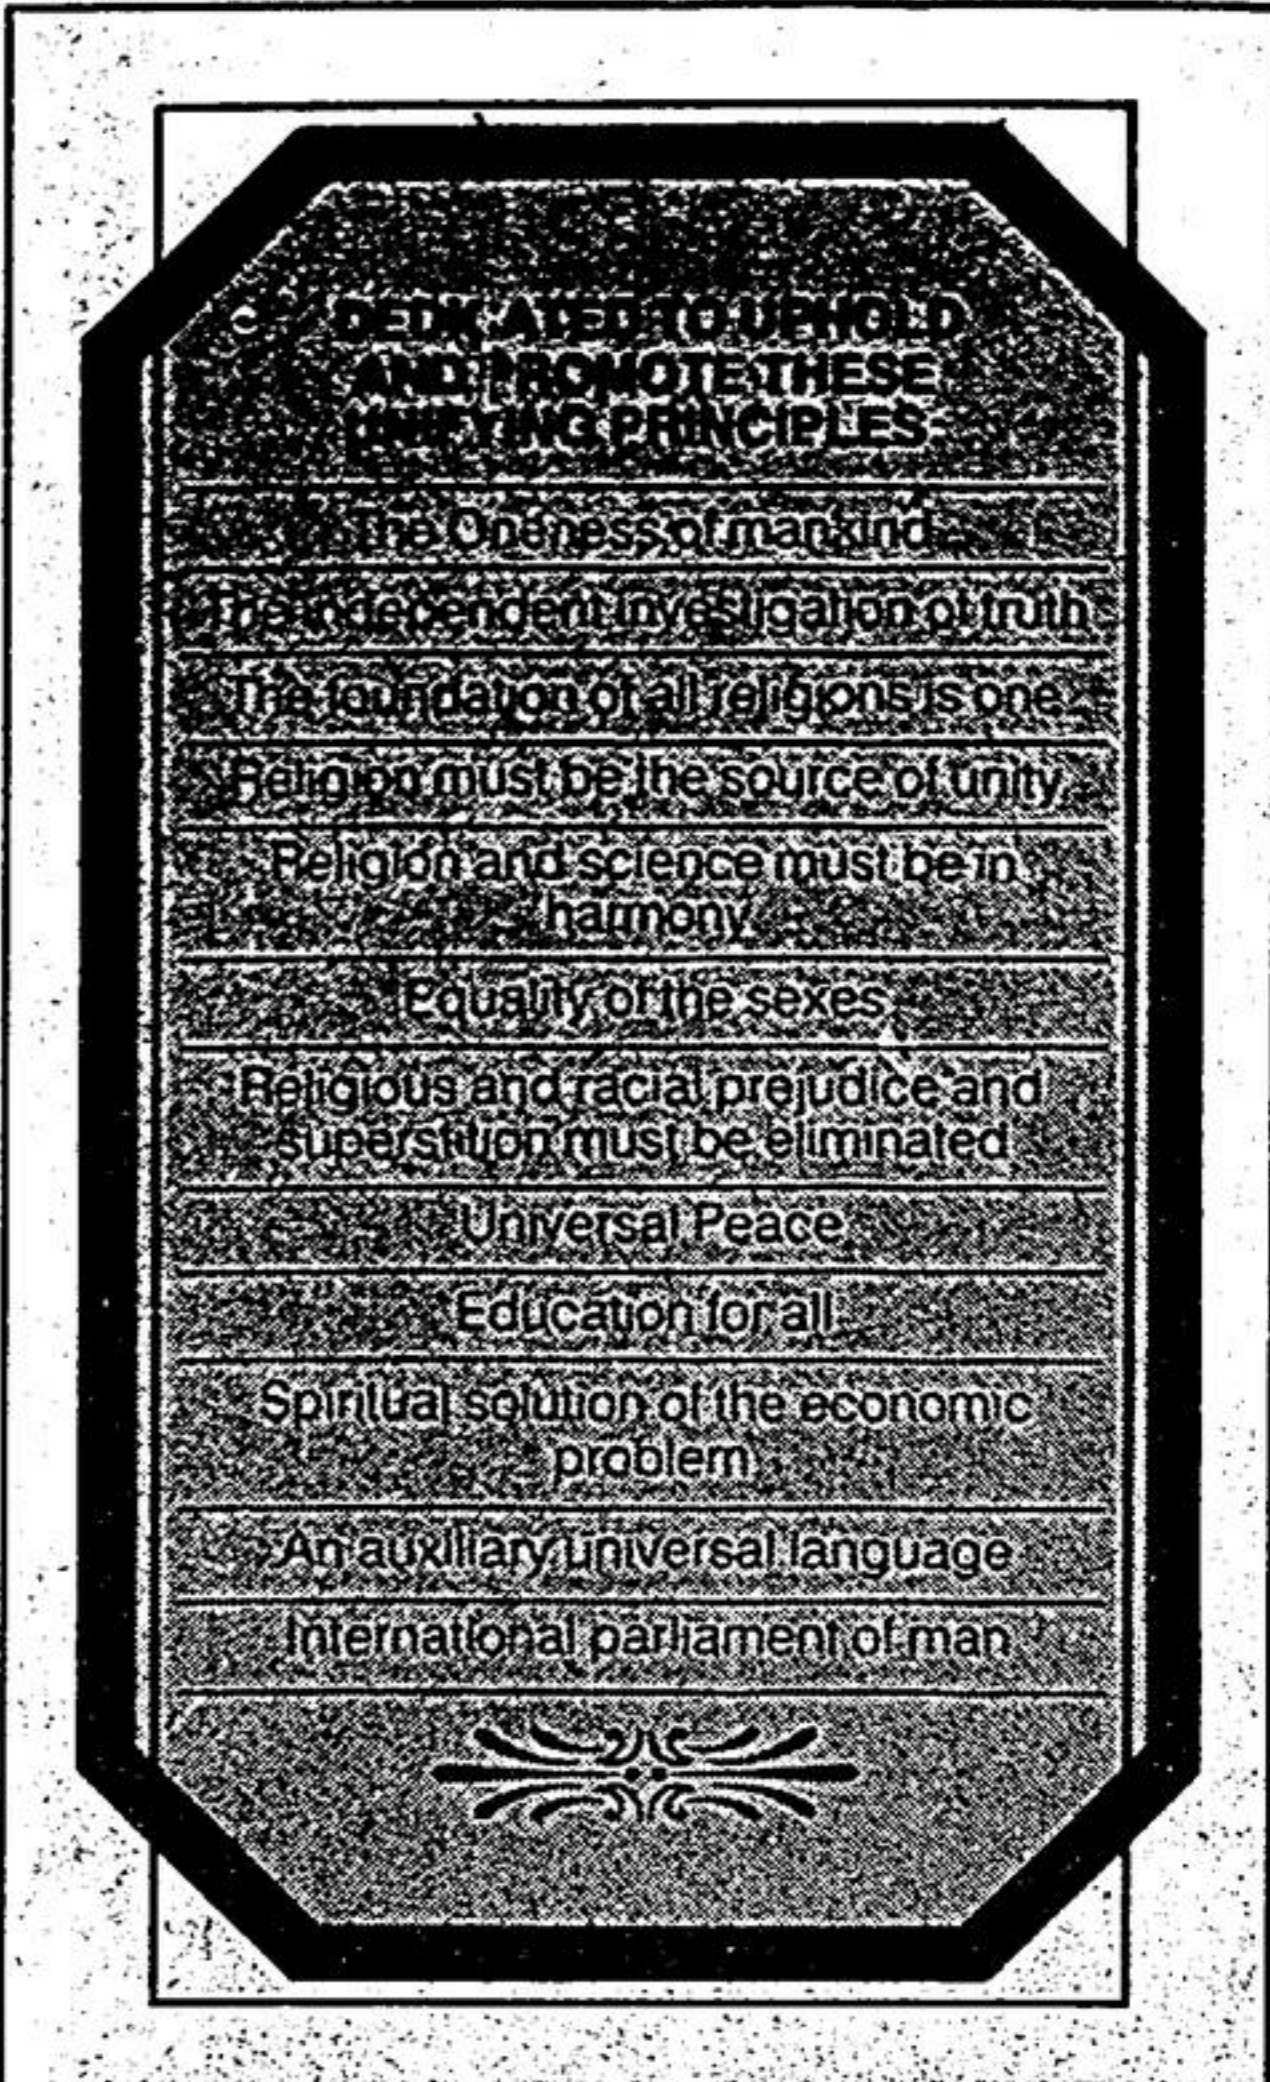 DEDICATED TO UPHOLD
AND PROMOTE THESE
UNIFYING PRINCIPLES
The Oneness of mankind
The independent investigation of truth
The foundation of all religions is one
Religion must be the source of unity
Religion and science must be in
harmony
Equality of the sexes
Religious and racial prejudice and
superstition must be eliminated
Universal Peace
Education for all
Spiritual solution of the economic
problem
An auxiliary universal language
International parliament of man